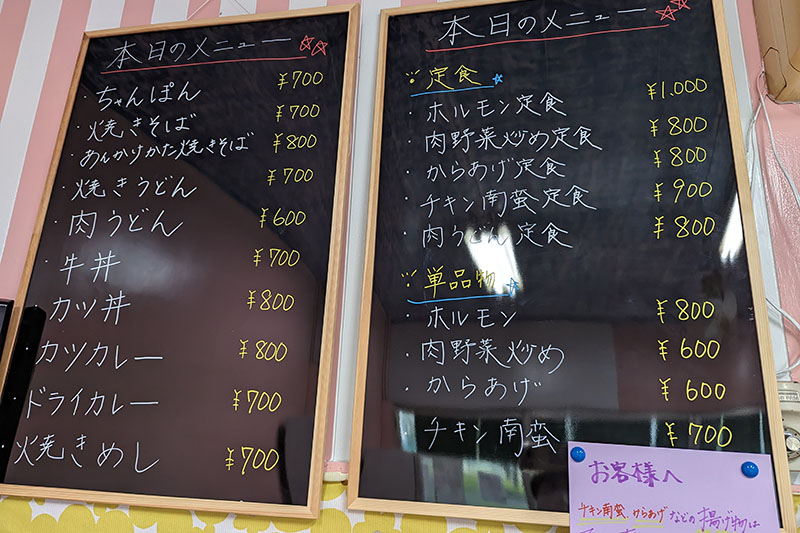 本日のメニュー ☆☆
・ちゃんぽん ¥700
・焼きそば ¥700
・あんかけかた焼きそば ¥800
・焼きうどん ¥700
・肉うどん ¥600
・牛丼 ¥700
・カツ丼 ¥800
・カツカレー ¥800
・ドライカレー ¥700
・焼きめし ¥700
本日のメニュー ☆☆
定食 ☆
・ホルモン定食 ¥1,000
・肉野菜炒め定食 ¥800
・からあげ定食 ¥800
・チキン南蛮定食 ¥900
・肉うどん定食 ¥800
単品物 ☆
・ホルモン ¥800
・肉野菜炒め ¥600
・からあげ ¥600
・チキン南蛮 ¥700
お客様へ
チキン南蛮、からあげなどの揚げ物は